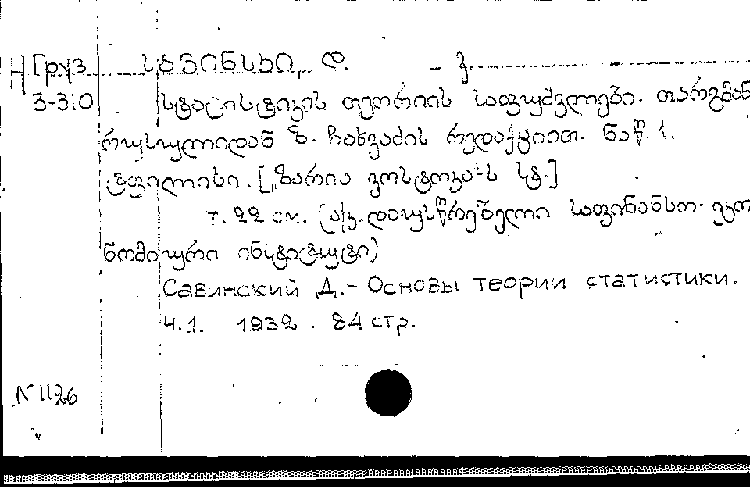 Груз სავინსკი, დ. – ვ.
3-3.0 სტატისტიკის თეორიის საფუძვლები. თარგმან
რუსულიდან ზ. ჩახვაძის რედაქციით. ნაწ. 1.
ტფილისი. ["ზარია ვოსტოკა"-ს სტ.]
т. 22 см. (აკ. დაუსწრებელი საფინანსო-ეკო
ნომიური ინსტიტუტი)
Савинский Д. – Основы теории статистики.
ч.1. 1932. 84 стр.
N 1126